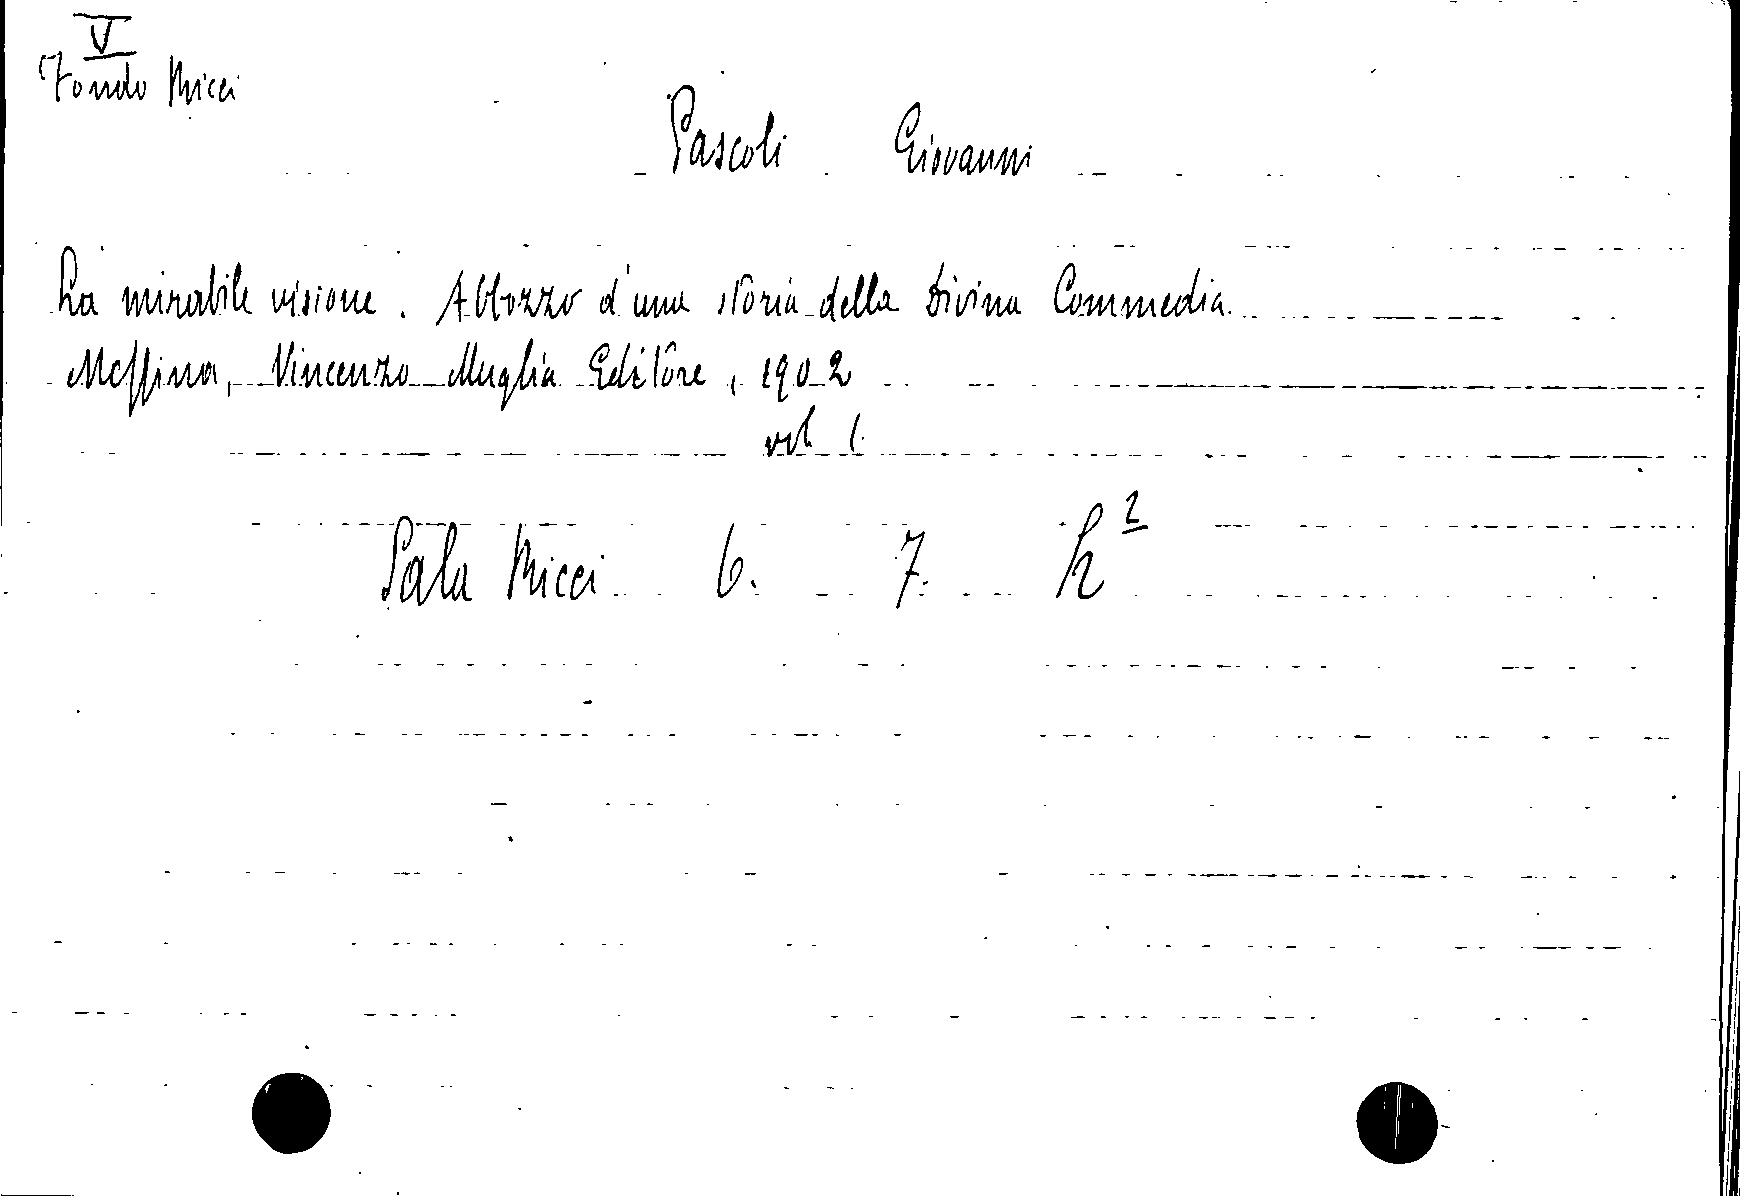 V
Fondo Ricci
Pascoli Giovanni
La mirabile visione. Abbozzo d'una storia della Divina Commedia.
Messina, Vincenzo Muglia Editore, 1902
vol. 1.
Sala Ricci 6. 7. h²